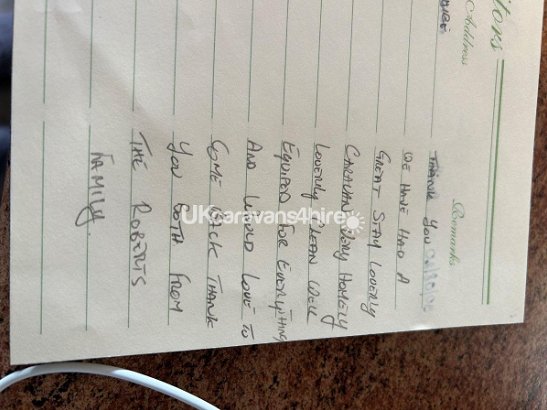 itors
Address
Remarks
THANK YOU
WE HAVE HAD A
GREAT STAY LOVERLY
CARAVAN VERY HOMELY
LOVERLY CLEAN WELL
EQUIPED FOR EVERYTHING
AND WOULD LOVE TO
COME BACK THANK
YOU BOTH FROM
THE ROBERTS
FAMILY
UKcaravans4hire